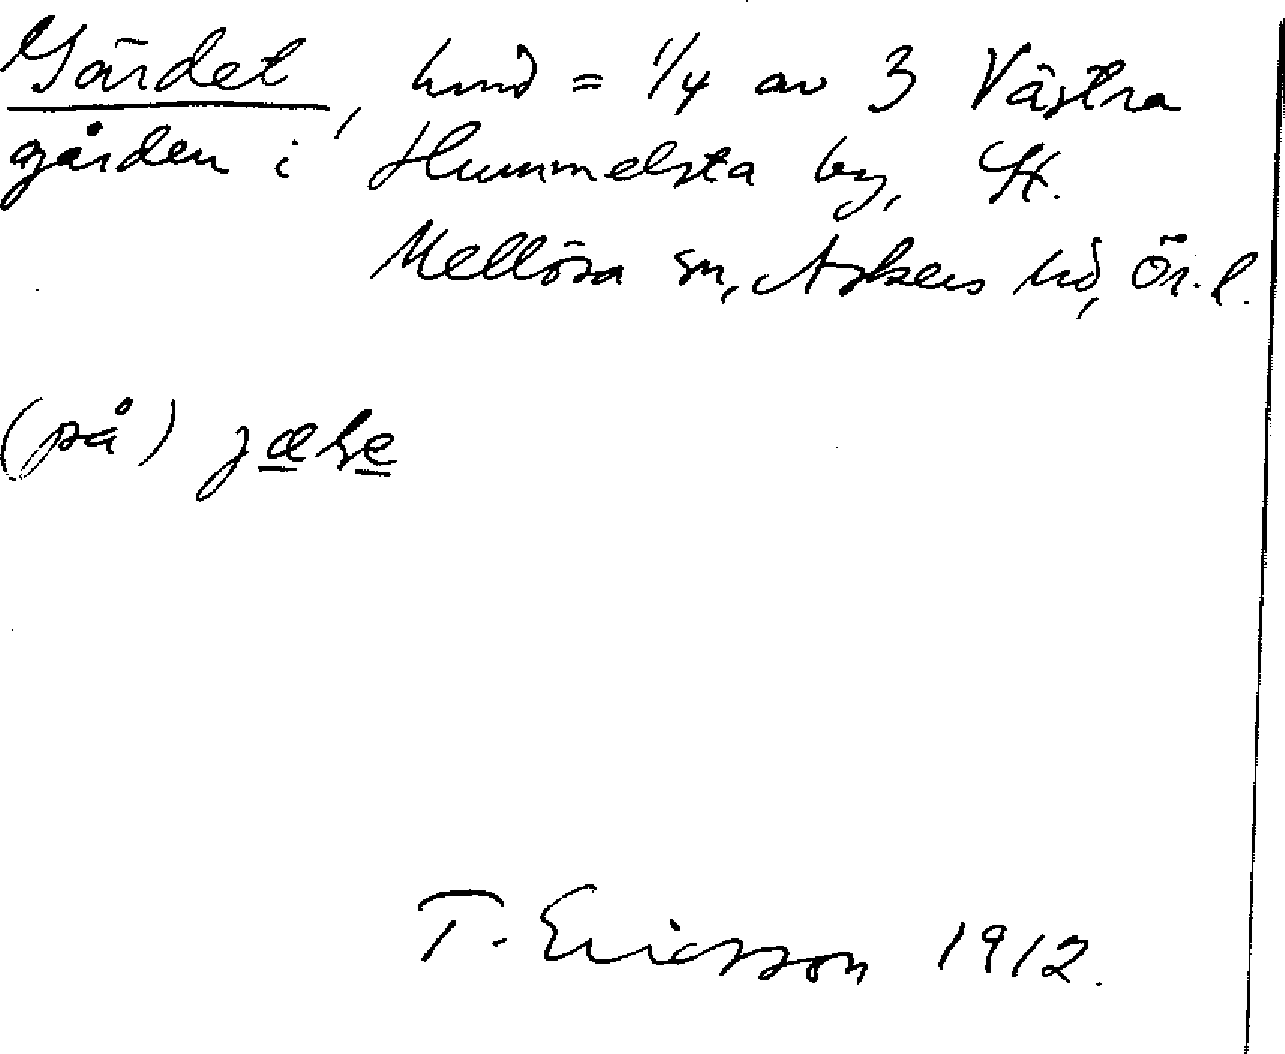 Gärdet, hmd = 1/4 av 3 Västra
gården i Hummelsta by, St.
Mellösa sn, Askers hd, Ör. l.
(på)
T. Ericsson 1912.